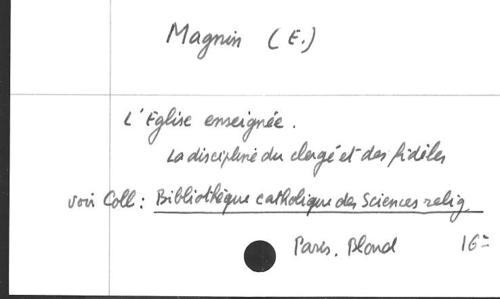 Magnin (E.)
L'Eglise enseignée.
La discipline du clergé et des fidèles
voir Coll : Bibliothèque catholique des Sciences relig.
Paris. Bloud 16=